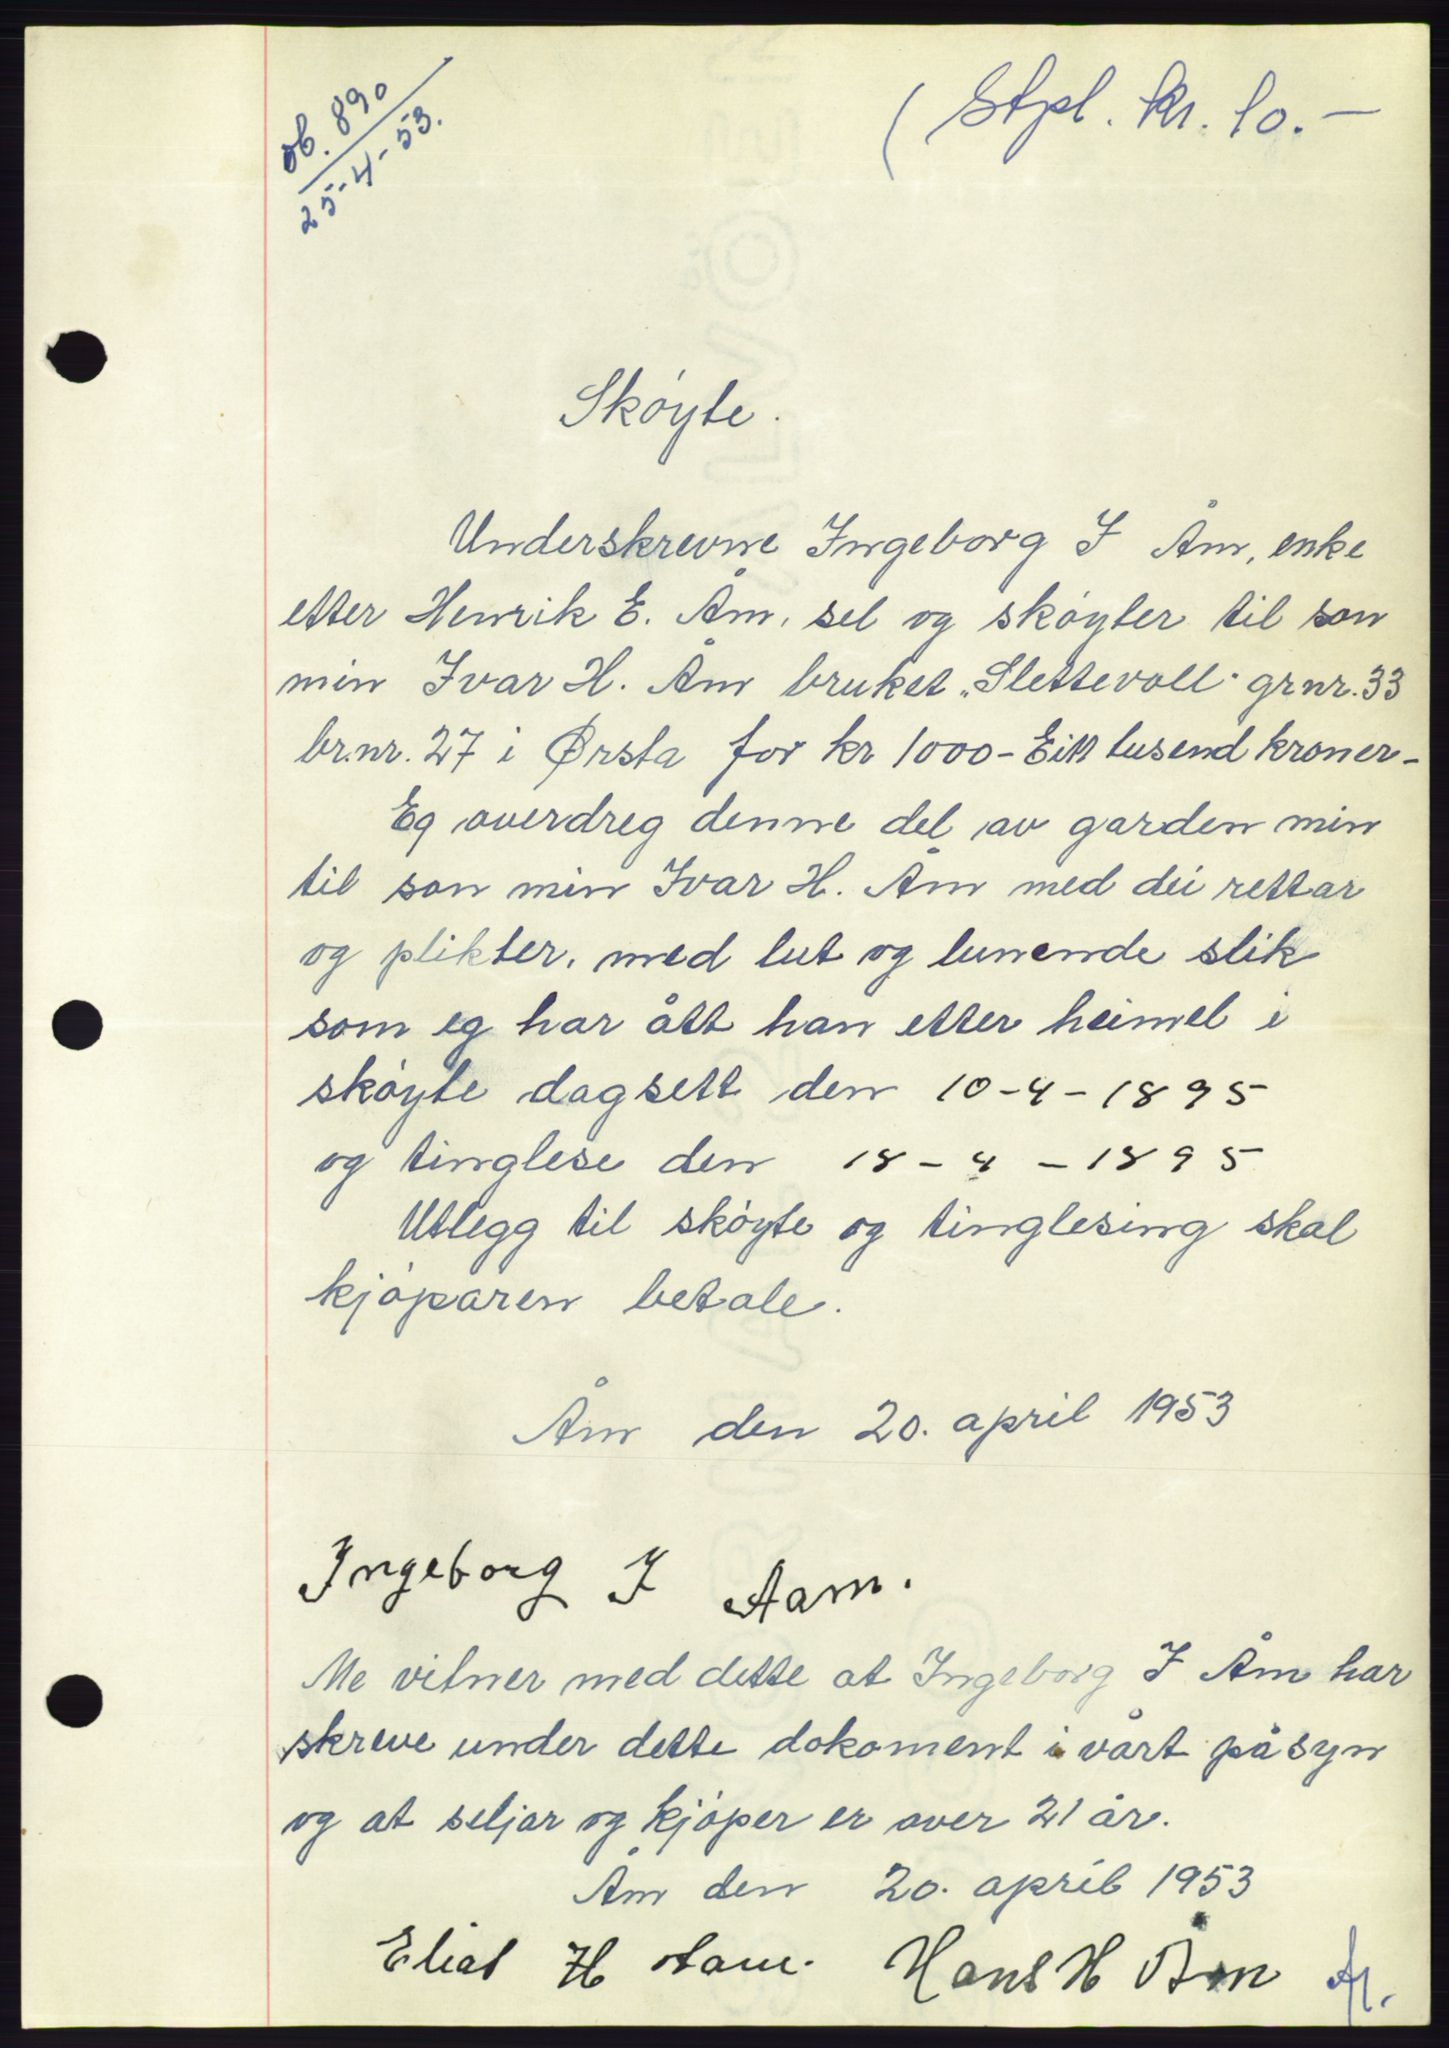 ob. 890
25-4-53.
( Stpl. kr. 10.-
Skøyte.
Underskrevne Ingeborg I Åm, enke
etter Henrik E. Åm, sel og skøyter til son
min Ivar H. Åm bruket „Slettevoll" grnr. 33
br.nr. 27 i Ørsta for kr 1000- Eitt tusend kroner-
Eg overdreg denne del av garden min
til son min Ivar H. Åm med dei rettar
og plikter, med lut og lunende slik
som eg har ått han etter heimel i
skøyte dagsett den 10-4-1895
og tinglese den 18-4-1895
Utlegg til skøyte og tinglesing skal
kjøparen betale.
Åm den 20. april 1953
Ingeborg I Aam.
Me vitner med dette at Ingeborg I Åm har
skreve under dette dokoment i vårt påsyn
og at seljar og kjøper er over 21 år.
Åm den 20. april 1953
Elias H Aam. Hans H Åm